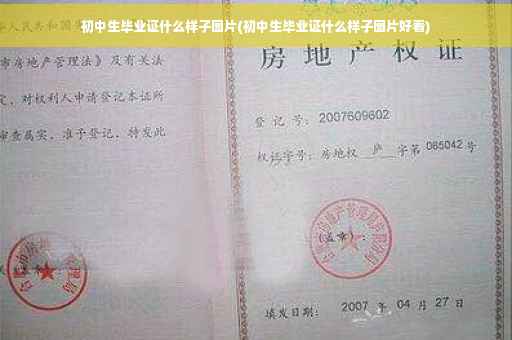 初中生毕业证什么样子图片(初中生毕业证什么样子图片好看)
华人民共和国
市房地产管理法》及有关法
定，对权利人申请登记本证所
审查属实，准予登记，特发此
房地产权证
登记号：2007609602
权证字号：房地权 庐 字第 085042 号
(盖章)：
填发日期：2007 年 04 月 27 日